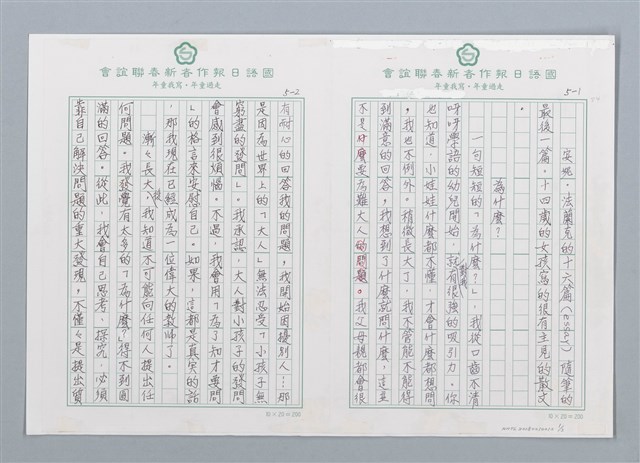 國語日報作者新春聯誼會
走過童年•寫我童年
5-1
安妮．法蘭克的十六篇(essay)隨筆的
最後一篇，十四歲的女孩寫的很有主見的散文
。
為什麼？
一句短短的「為什麼？」，我從口齒不清
呀呀學語的幼兒開始，就有很強的吸引力。你
也知道，小娃娃什麼都不懂，才會什麼都想問
，我也不例外。稍微長大了，我不管能不能得
到滿意的回答，我想到了什麼就問什麼，這並
不是什麼要為難大人的問題。我父母親都會很
國語日報作者新春聯誼會
走過童年•寫我童年
5-2
有耐心的回答我的問題，我開始困擾別人！那
是因為世界上的「大人」無法忍受「小孩子無
窮盡的發問」。我承認，大人對小孩子的發問
會感到很煩惱。不過，我會用「為了知才要問
」的格言來安慰自己。如果，這都是真笑的話
，那我現在已經成為一位偉大的教師了。
漸漸長大後，我知道不可能向任何人提出任
何問題。我發覺有太多的「為什麼？」得不到圓
滿的回答。從此，我會自己思考，探究。必須
靠自己解決問題的重大發現，不僅僅是提出質
10×20=200
10×20=200